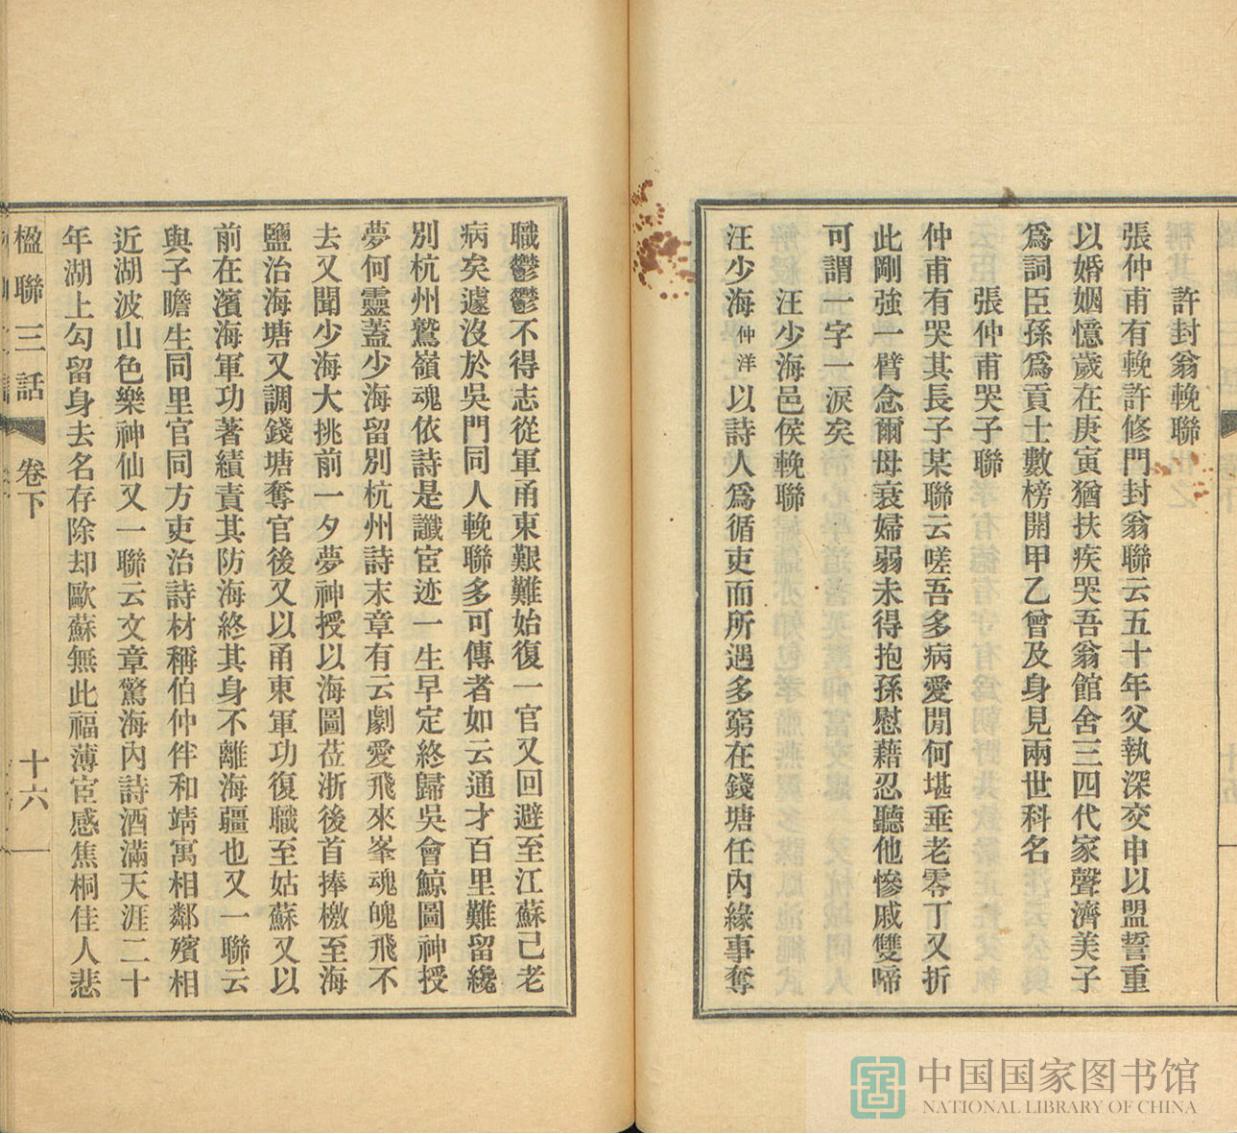 許封翁輓聯
張仲甫有輓許修門封翁聯云五十年父執深交申以盟誓重
以婚姻憶歲在庚寅猶扶疾哭吾翁館舍三四代家聲濟美子
爲詞臣孫爲貢士數榜開甲乙曾及身見兩世科名
張仲甫哭子聯
仲甫有哭其長子某聯云嗟吾多病愛閒何堪垂老零丁又折
此剛強一臂念爾母衰婦弱未得抱孫慰藉忍聽他慘戚雙啼
可謂一字一淚矣
汪少海邑侯輓聯
汪少海仲洋以詩人爲循吏而所遇多窮在錢塘任內緣事奪
職鬱鬱不得志從軍甬東艱難始復一官又回避至江蘇已老
病矣遽沒於吳門同人輓聯多可傳者如云通才百里難留纔
別杭州鷲嶺魂依詩是讖宦迹一生早定終歸吳會鯨圖神授
夢何靈蓋少海留別杭州詩末章有云劇愛飛來峯魂魄飛不
去又聞少海大挑前一夕夢神授以海圖莅浙後首捧檄至海
鹽治海塘又調錢塘奪官後又以甬東軍功復職至姑蘇又以
前在濱海軍功著績責其防海終其身不離海疆也又一聯云
與子瞻生同里官同方吏治詩材稱伯仲伴和靖寓相鄰殯相
近湖波山色樂神仙又一聯云文章驚海內詩酒滿天涯二十
年湖上勾留身去名存除却歐蘇無此福薄宦感焦桐佳人悲
楹聯三話 卷下 十六
中国国家图书馆
NATIONAL LIBRARY OF CHINA